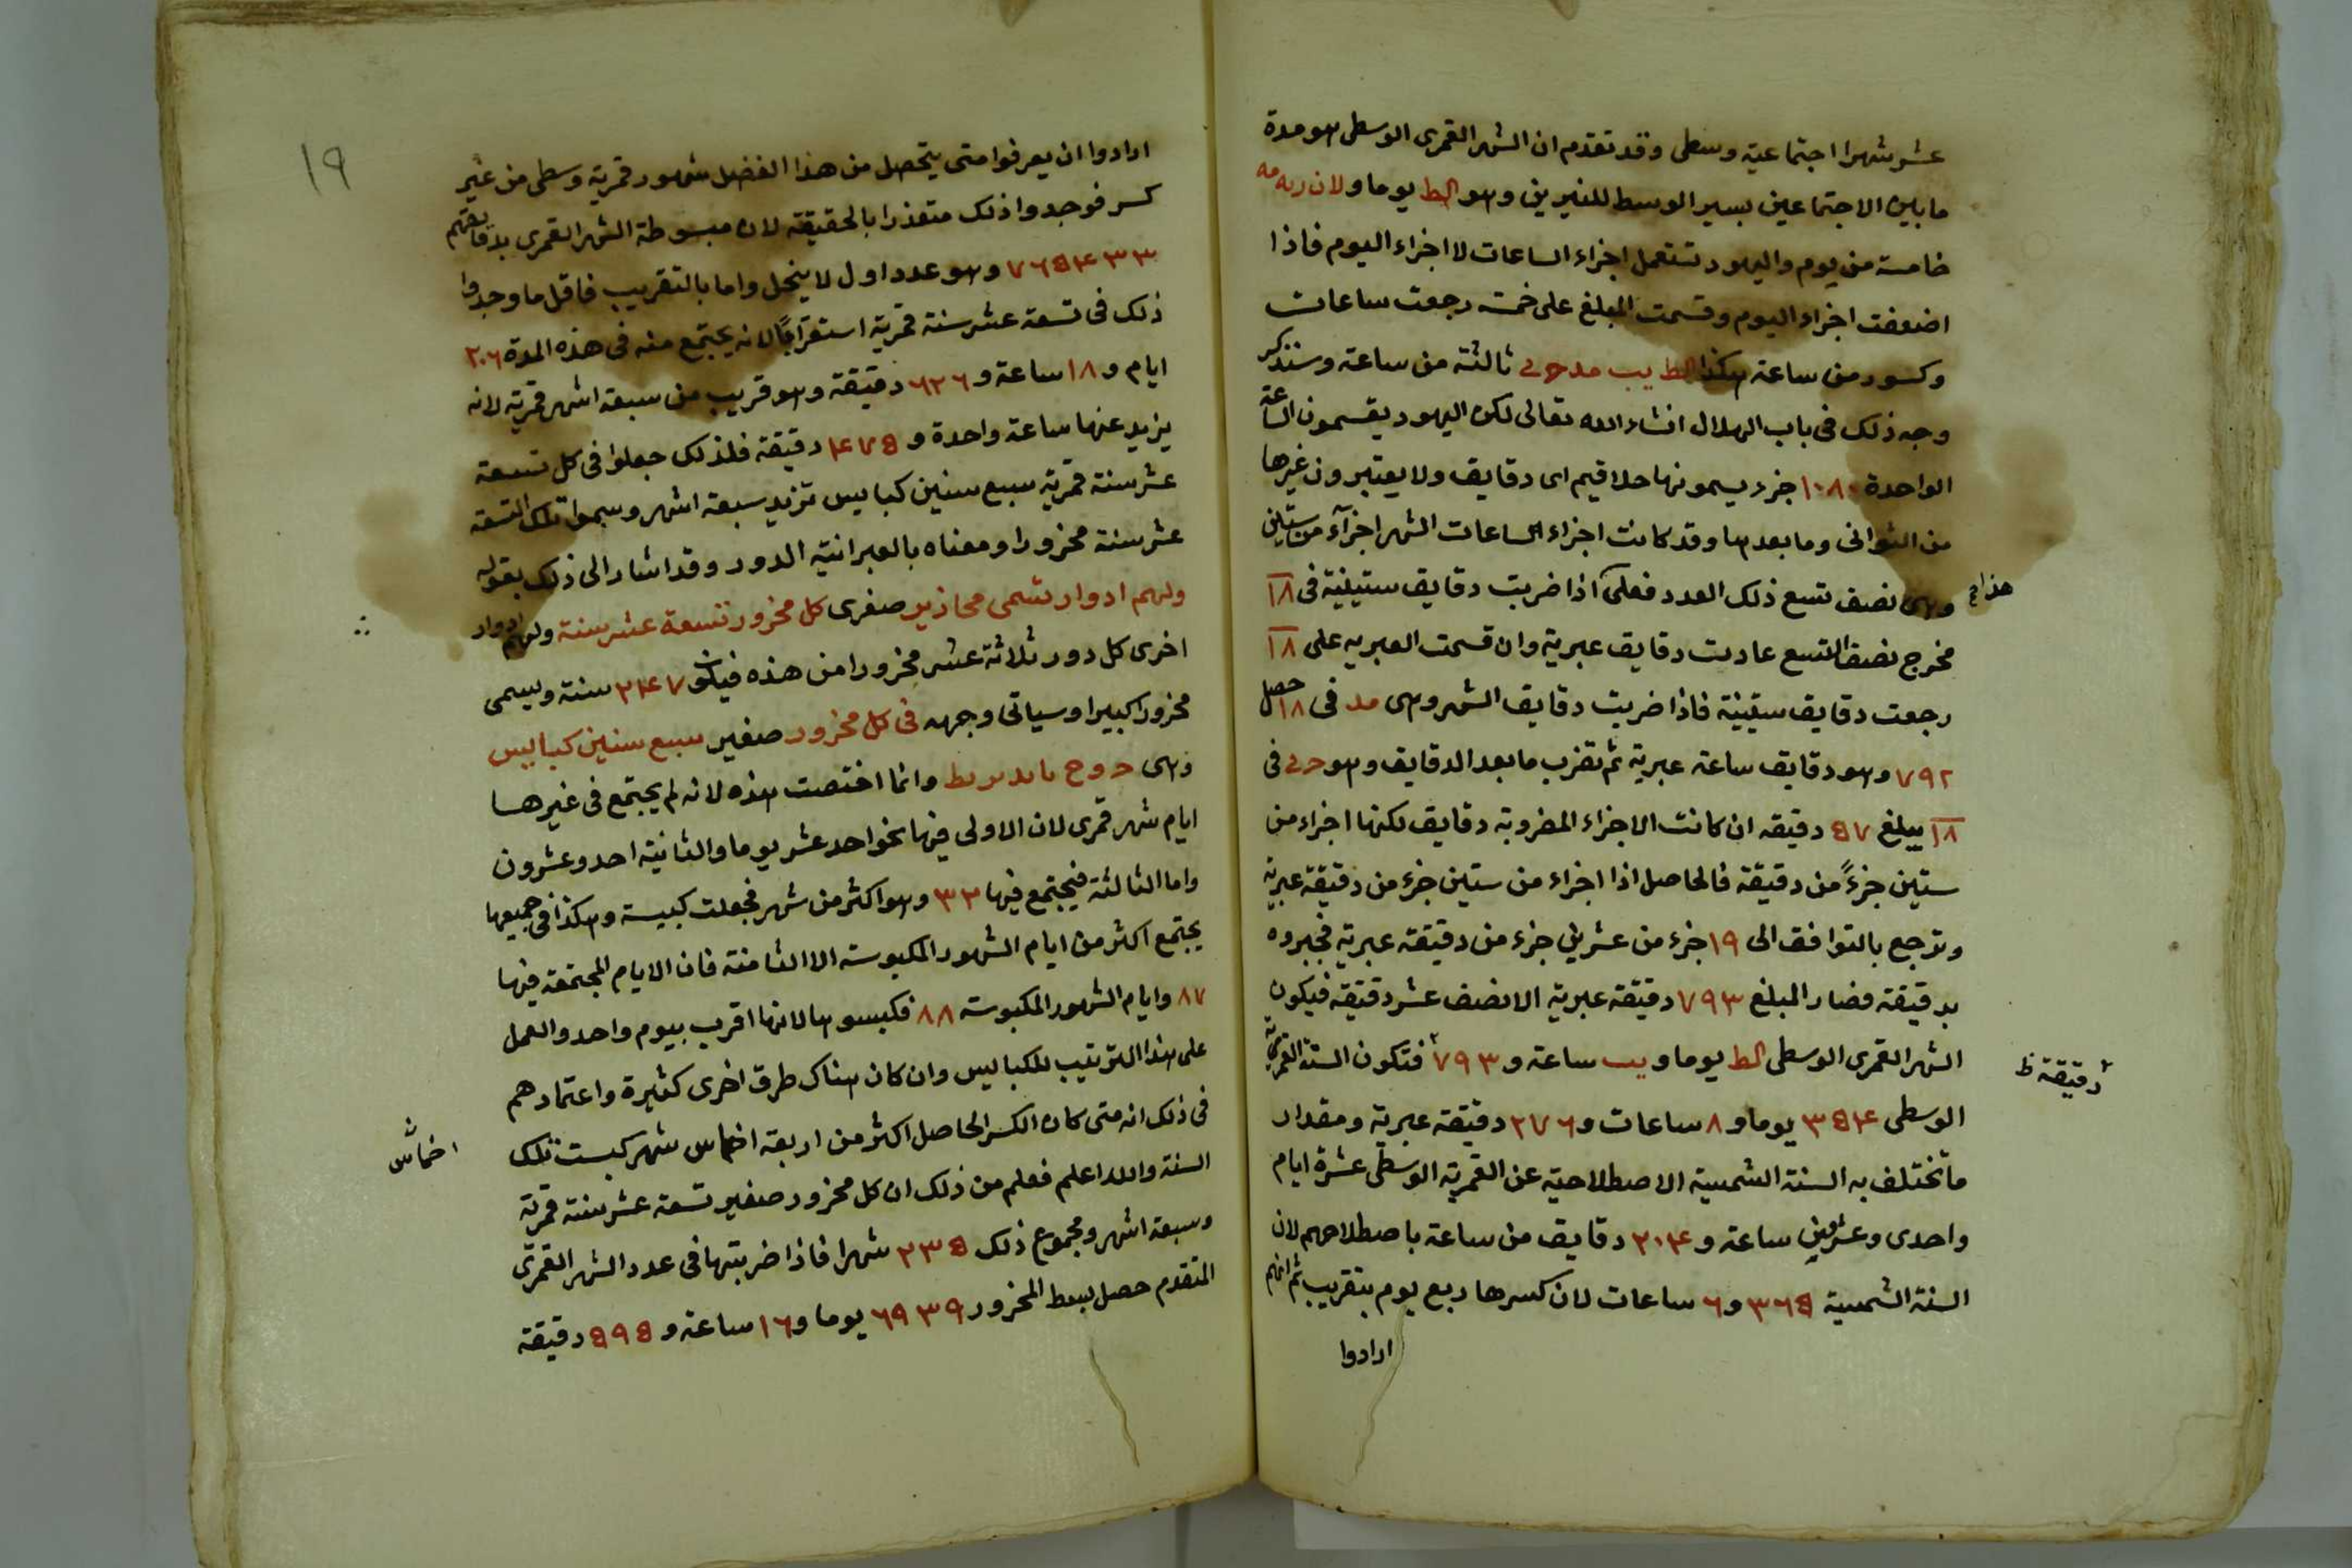 عشر شهرا اجتماعية وسطى وقد تقدم ان الشهر القمرى الوسطى هو مدة
ما بين الاجتماعين بسير الوسط للنيرين وهو الط يوما ولان ربه مه
خامسة من يوم واليهود تستعمل اجزاء الساعات لا اجزاء اليوم فاذا
اضعفت اجزاء اليوم وقسمت المبلغ على خمسة رجعت ساعات
وكسور من ساعة هكذا الط يب مد حرلے ثالثة من ساعة وسنذكر
وجه ذلك فى باب الهلال انشاء الله تعالى لكن اليهود يقسمون الساعة
الواحدة ١٠٨٠ جزء يسمونها حلاقيم اى دقايق ولا يعتبرون غيرها
من الثوانى وما بعدها وقد كانت اجزاء الساعات الشهر اجزآء من ستين
وهى نصف تسع ذلك العدد فعلى هذا اذا ضربت دقايق ستينية فى ١٨
مخرج نصف التسع عادت دقايق عبرية وان قسمت العبريه على ١٨
رجعت دقايق ستينية فاذا ضربت دقايق الشهر وهى مد فى ١٨ حصل
٧٩٢ وهو دقايق ساعة عبرية ثم تضرب ما بعد الدقايق وهو حرلے فى
١٨ يبلغ ٥٧ دقيقه ان كانت الاجزاء المضروبة دقايق لكنها اجزاء من
ستين جزءً من دقيقة فالحاصل اذا اجزاء من ستين جزء من دقيقة عبرية
وترجع بالتوافق الى ١٩ جزء من عشرين جزء من دقيقة عبرية فجبروه
بدقيقة فصار المبلغ ٧٩٣ دقيقة عبرية الا نصف عشر دقيقة فيكون
الشهر القمرى الوسطى الط يوما و يب ساعة و ٧٩٣ فتكون السنة القمرية
دقيقة ظ
الوسطى ٣٥٤ يوما و ٨ ساعات و ٢٧٦ دقيقة عبرية ومقدار
ما تختلف به السنة الشمسية الاصطلاحية عن القمرية الوسطى عشرة ايام
واحدى وعشرين ساعة و ٢٠٤ دقايق من ساعة باصطلاحهم لان
السنة الشمسية ٣٦٥ و ٦ ساعات لان كسرها ربع يوم بتقريب ثم انهم
ارادوا
١٩
ارادوا ان يعرفوا متى يتحصل من هذا الفضل شهور قمرية وسطى من غير
كسر فوجدوا ذلك متعذرا بالحقيقة لان مبسوطة الشهر القمرى بدقايقهم
٧٦٥٤٣٣ وهو عدد اول لا ينحل واما بالتقريب فاقل ما وجدوا
ذلك فى تسعة عشر سنة قمرية استقراءً لانه يجتمع منه فى هذه المدة ٢٠٦
ايام و ١٨ ساعة و ٦٣٦ دقيقة وهو قريب من سبعة اشهر قمرية لانه
يزيد عنها ساعة واحدة و ٤٧٥ دقيقة فلذلك جعلوا فى كل تسعة
عشر سنة قمرية سبع سنين كبايس تزيد سبعة اشهر وسموا تلك التسعة
عشر سنة مخزورا ومعناه بالعبرانية الدور وقد اشار الى ذلك بقوله
ولهم ادوار تسمى محازير صغرى كل مخزور تسعة عشر سنة ولهم ادوار
اخرى كل دور ثلاثة عشر مخزورا من هذه فيكون ٢٤٧ سنة ويسمى
مخزورا كبيرا وسياتى وجهه فى كل مخزور صغير سبع سنين كبايس
وهى ح و ح يا يد يز يط وانما اختصت هذه لانه لم يجتمع فى غيرها
ايام شهر قمرى لان الاولى فيها نحو احد عشر يوما والثانية احد وعشرون
واما الثالثة فيجتمع فيها ٣٢ وهو اكثر من شهر فجعلت كبيسة وهكذا فى جميعها
يجتمع اكثر من ايام الشهور المكبوسة الا الثامنة فان الايام المجتمعة فيها
٨٧ وايام الشهور المكبوسة ٨٨ فكبسوها لانها اقرب بيوم واحد والعمل
على هذا الترتيب للكبايس وان كان هناك طرق اخرى كثيرة واعتمادهم
فى ذلك انه متى كان الكسر الحاصل اكثر من اربعة اخماس شهر كبست تلك
اخماس
السنة والله اعلم فعلم من ذلك ان كل مخزور صغير تسعة عشر سنة قمرية
وسبعة اشهر ومجموع ذلك ٢٣٥ شهرا فاذا ضربتها فى عدد الشهر القمرى
المتقدم حصل بسط المخزور ٦٩٣٩ يوما و ١٦ ساعة و ٥٩٥ دقيقة